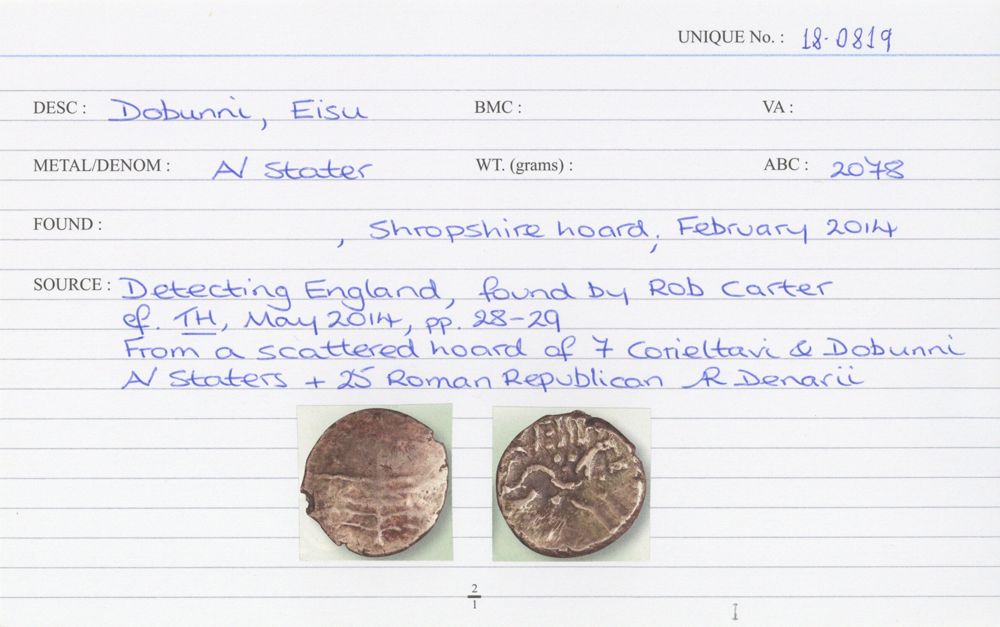 UNIQUE No. : 18-0819
DESC : Dobunni, Eisu BMC : VA :
METAL/DENOM : AV Stater WT. (grams) : ABC : 2078
FOUND : , Shropshire hoard, February 2014
SOURCE : Detecting England, found by Rob Carter
cf. TH, May 2014, pp. 28-29
From a scattered hoard of 7 Corieltavi & Dobunni
AV Staters + 25 Roman Republican AR Denarii
2
1
I